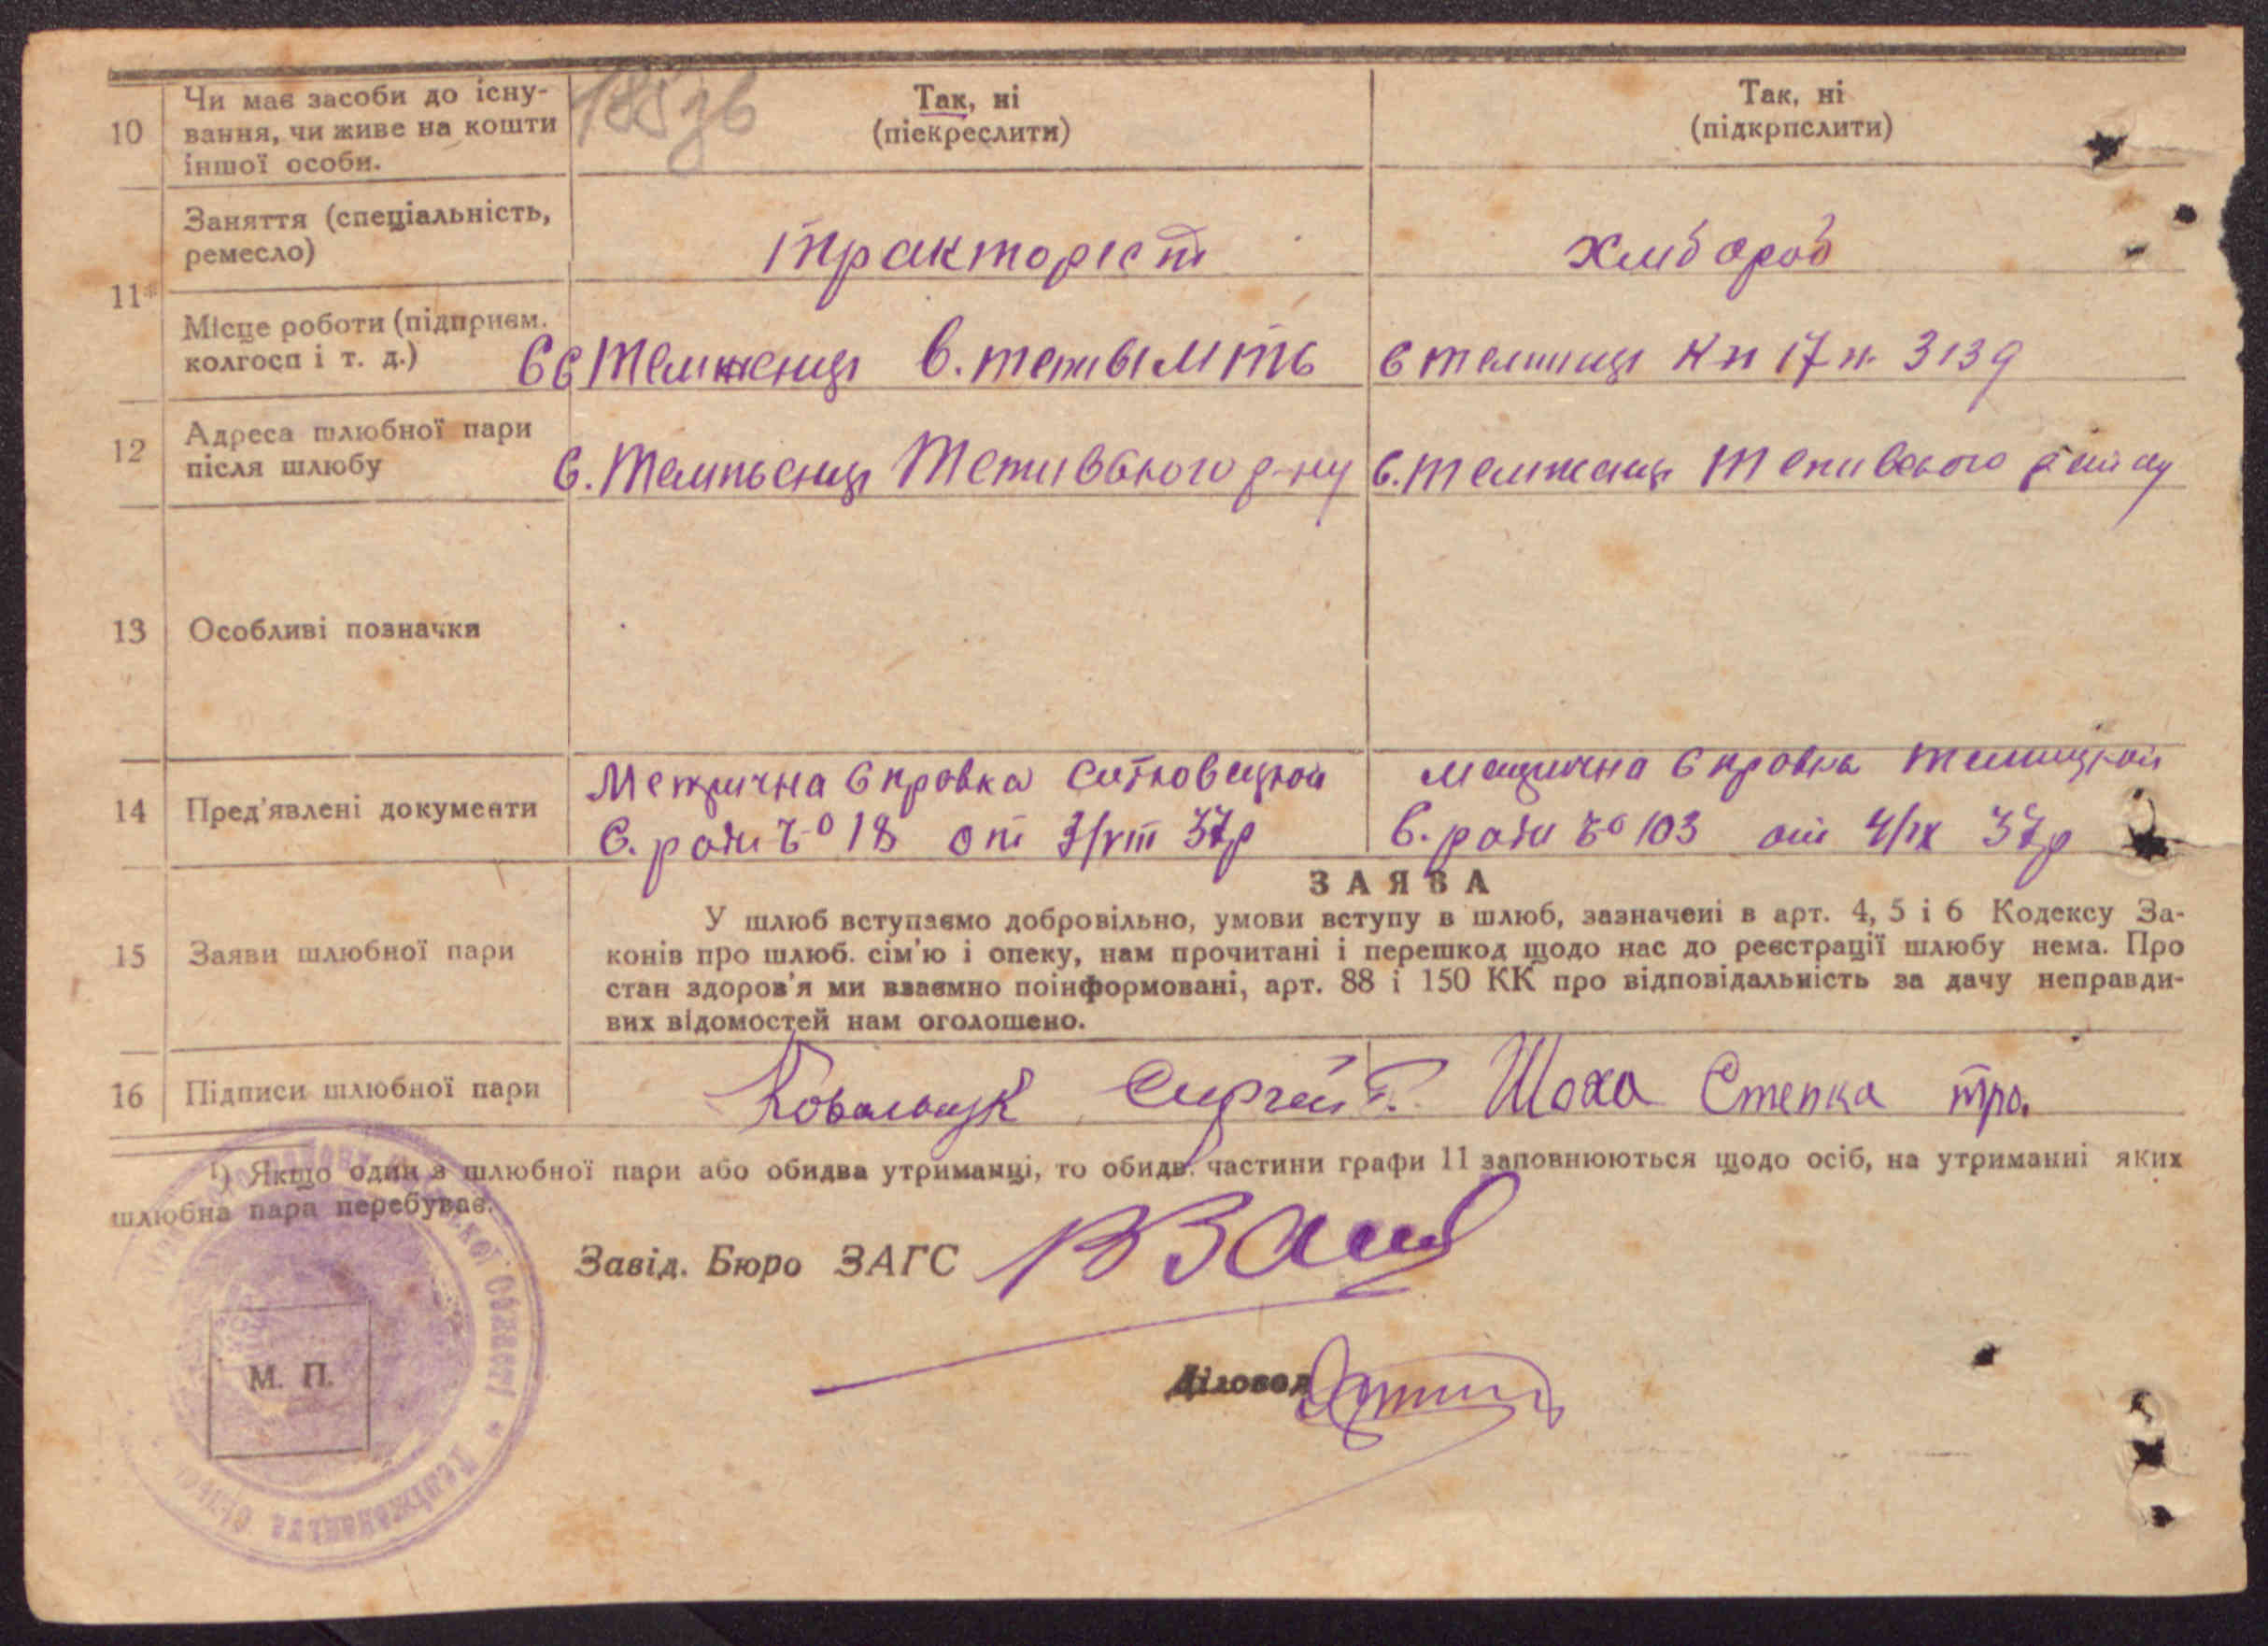 185зв
10
Чи має засоби до існу-
вання, чи живе на кошти
іншої особи.
Так, ні
(піекреслити)
Так, ні
(підкрпслити)
11
Заняття (спеціальність,
ремесло)
тракторіст
хлібороб
Місце роботи (підприєм.
колгосп і т. д.)
17 3139
12
Адреса шлюбної пари
після шлюбу
с. Тетивського р-ну
с. Тетивського
13
Особливі позначки
14
Пред'явлені документи
Метрична справка
с. ради № 18 от 37р
Метрична справка
с. ради № 103 от 4/IX 37р
15
Заяви шлюбної пари
ЗАЯВА
У шлюб вступаємо добровільно, умови вступу в шлюб, зазначені в арт. 4, 5 і 6 Кодексу За-
конів про шлюб. сім'ю і опеку, нам прочитані і перешкод щодо нас до реєстрації шлюбу нема. Про
стан здоров'я ми взаємно поінформовані, арт. 88 і 150 КК про відповідальність за дачу неправди-
вих відомостей нам оголошено.
16
Підписи шлюбної пари
Ковальчук Сергей Г. Шоха Степка
¹) Якщо один з шлюбної пари або обидва утриманці, то обидв. частини графи 11 заповнюються щодо осіб, на утриманні яких
шлюбна пара перебуває.
Завід. Бюро ЗАГС
Діловод
М. П.